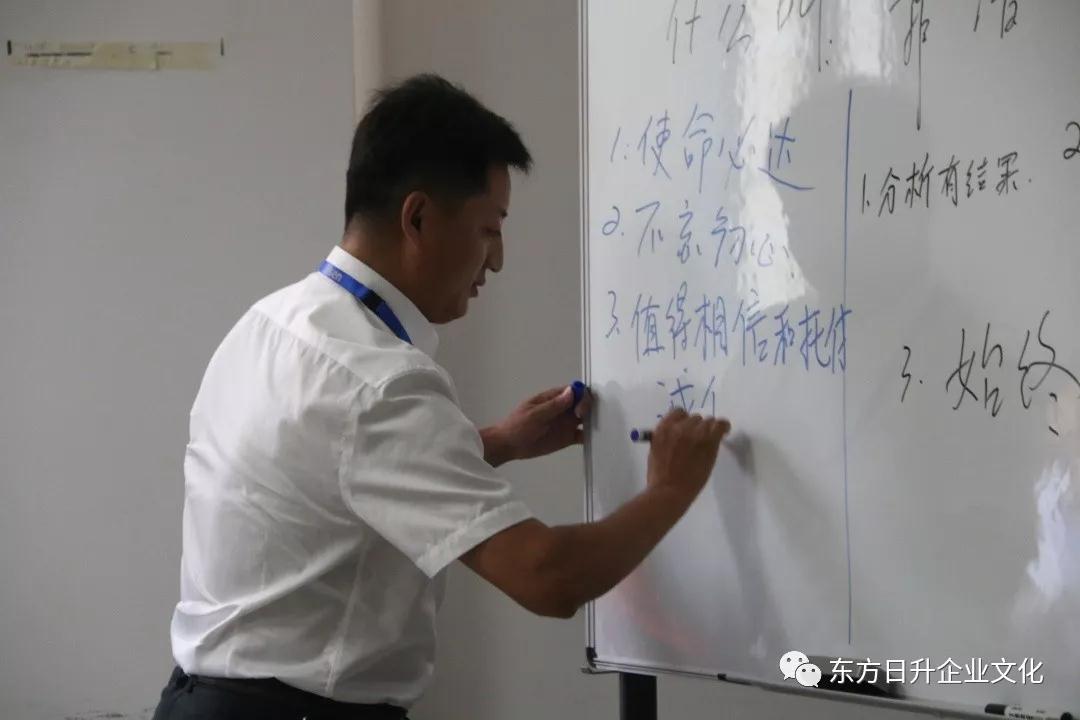 什么叫靠谱
1. 使命必达
2. 不忘初心
3. 值得相信和托付
诚
1. 分析有结果.
2
3. 始终
东方日升企业文化